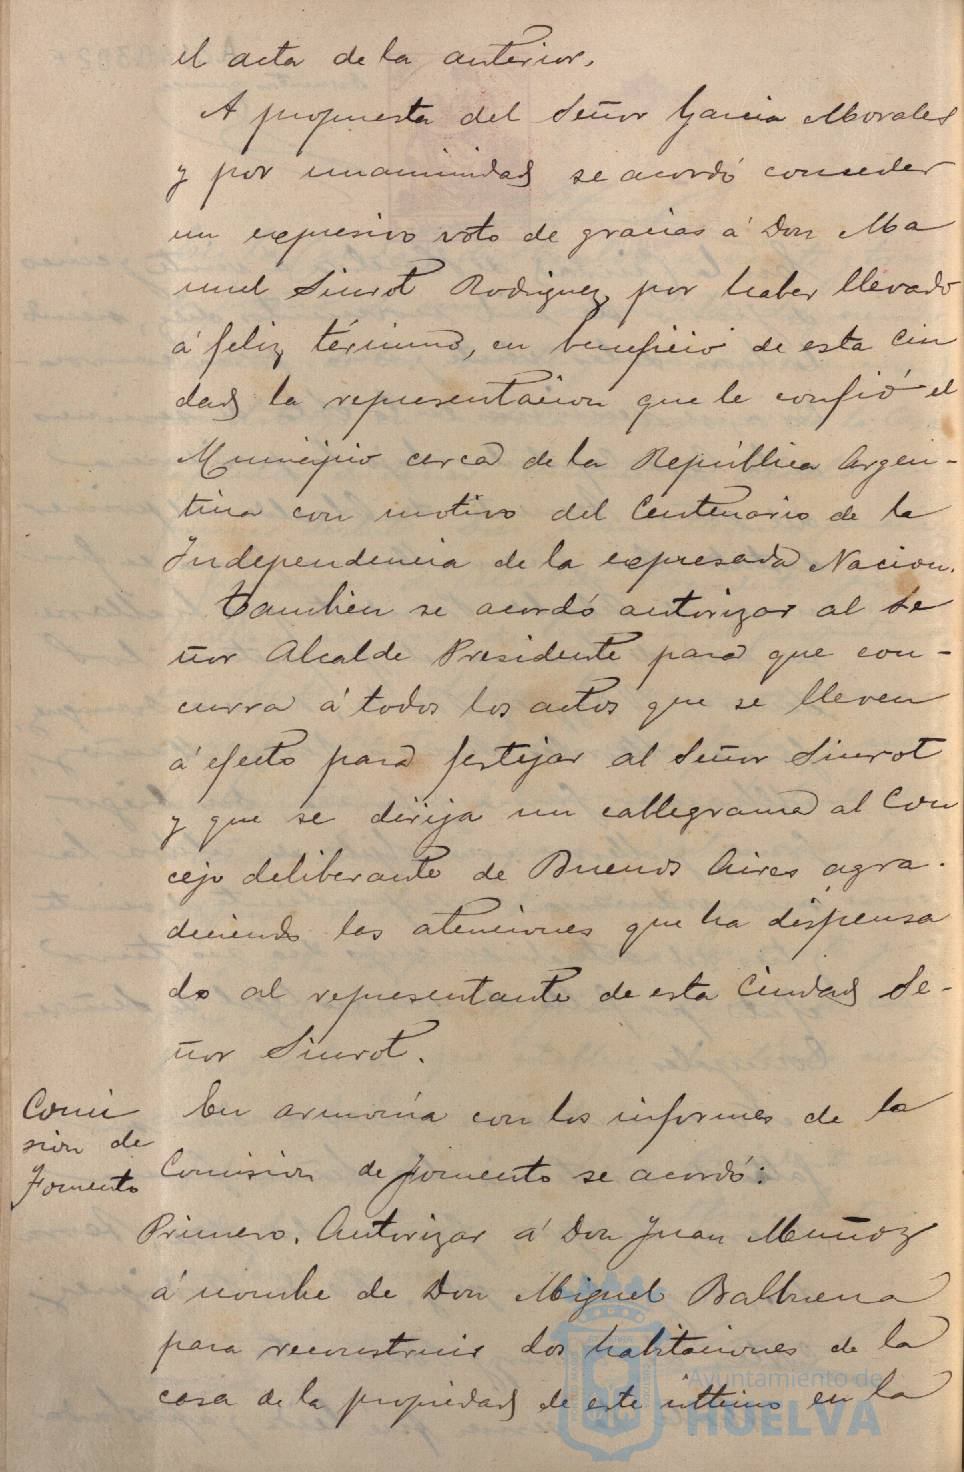 el acta de la anterior.
A propuesta del Señor Garcia Morales
y por unanimidad se acordó conceder
un expresivo voto de gracias á Don Ma
nuel Siurot Rodriguez, por haber llevado
á feliz término, en beneficio de esta Ciu
dad la representacion que le confió el
Municipio cerca de la República Argen-
tina con motivo del Centenario de la
Independencia de la expresada Nacion.
Tambien se acordó autorizar al Se
ñor Alcalde Presidente para que con-
curra á todos los actos que se lleven
á efecto para festejar al Señor Siurot
y que se dirija un cablegrama al Con
cejo deliberante de Buenos Aires agra-
deciendo las atenciones que ha dispensa
do al representante de esta Ciudad Se-
ñor Siurot.
Comi
sion de
Fomento
En armonía con los informes de la
Comision de fomento se acordó:
Primero. Autorizar á Don Juan Muñoz
á nombre de Don Miguel Balbuena
para reconstruir dos habitaciones de la
casa de la propiedad de este último en la
Ayuntamiento de
HUELVA